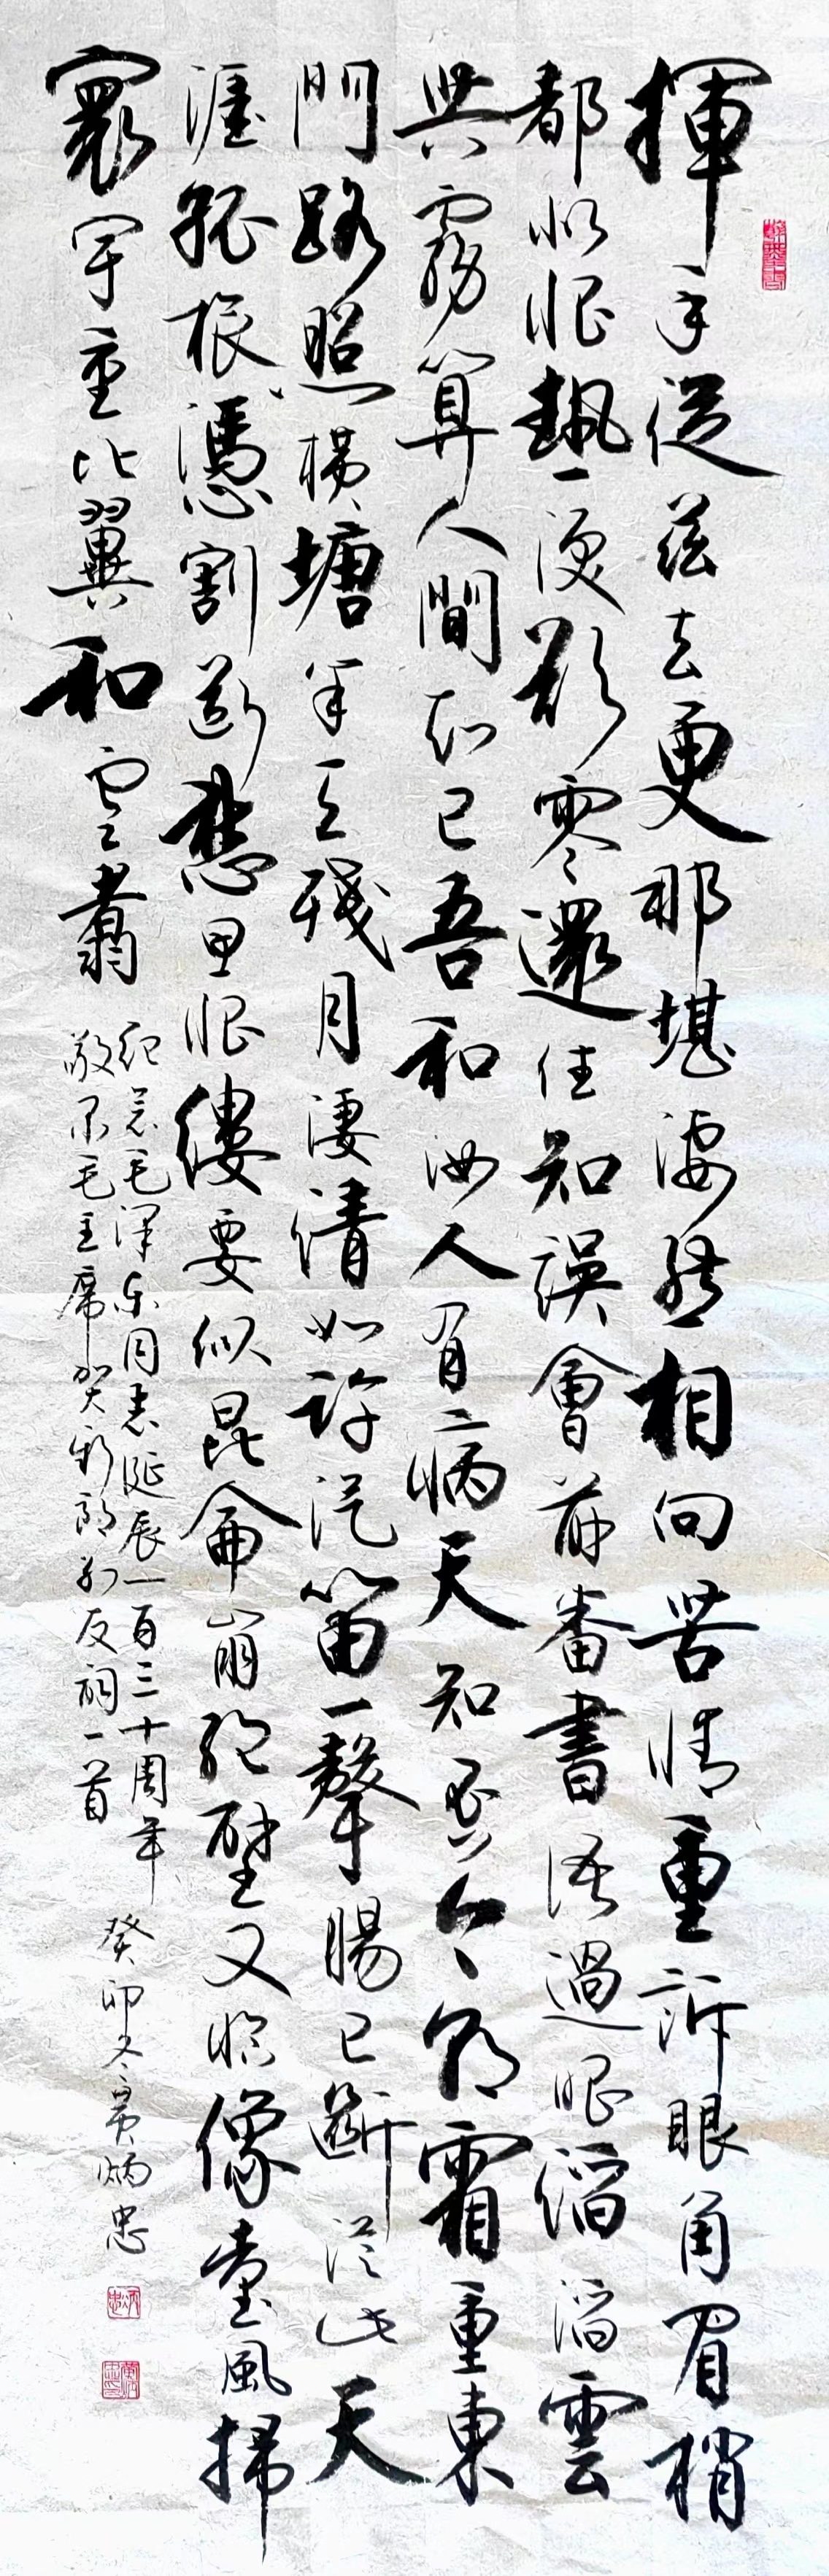 揮手從茲去更那堪淒然相向苦情重訴眼角眉梢
都似恨熱淚欲零還住知誤會前番書語過眼滔滔雲
共霧算人間知己吾和汝人有病天知否今朝霜重東
門路照橫塘半天殘月淒清如許汽笛一聲腸已斷從此天
涯孤旅憑割斷愁思恨縷要似昆侖崩絕壁又恰像臺風掃
寰宇重比翼和雲翥
紀念毛澤東同志誕辰一百三十周年
敬錄毛主席賀新郎別友詞一首
癸卯冬黃炳忠